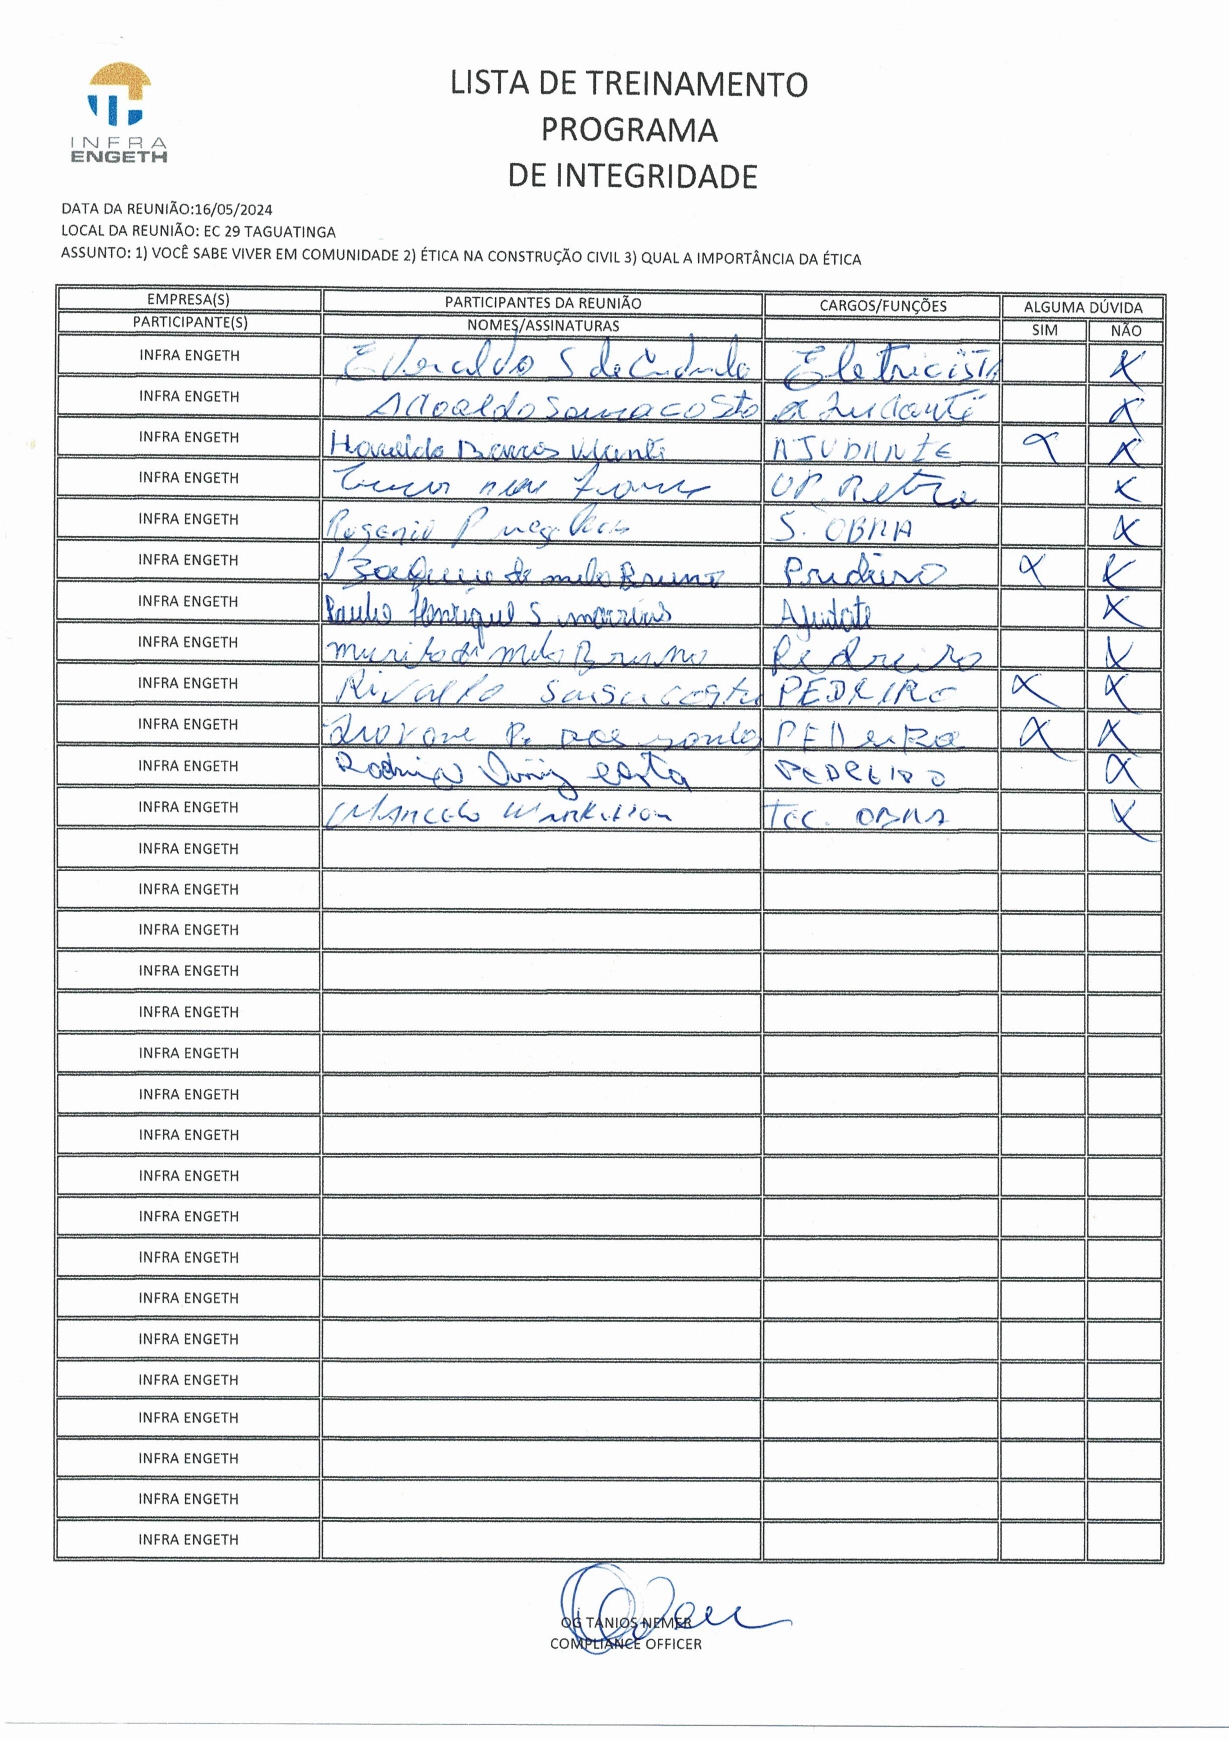 INFRA
ENGETH
LISTA DE TREINAMENTO
PROGRAMA
DE INTEGRIDADE
DATA DA REUNIÃO:16/05/2024
LOCAL DA REUNIÃO: EC 29 TAGUATINGA
ASSUNTO: 1) VOCÊ SABE VIVER EM COMUNIDADE 2) ÉTICA NA CONSTRUÇÃO CIVIL 3) QUAL A IMPORTÂNCIA DA ÉTICA
EMPRESA(S) PARTICIPANTES DA REUNIÃO CARGOS/FUNÇÕES ALGUMA DÚVIDA
PARTICIPANTE(S) NOMES/ASSINATURAS SIM NÃO
INFRA ENGETH S de Eletricista X
INFRA ENGETH costa ajudante X
INFRA ENGETH Haroldo Barros AJUDANTE X X
INFRA ENGETH OP. Retro X
INFRA ENGETH Rogerio P S. OBRA X
INFRA ENGETH de melo Bruno Pedreiro X X
INFRA ENGETH Paulo Henrique S Ajudate X
INFRA ENGETH murilo de melo Bruno Pedreiro X
INFRA ENGETH Rivaldo PEDREIRO X X
INFRA ENGETH P. dos santos X X
INFRA ENGETH costa PEDREIRO X
INFRA ENGETH Marcelo Tec. OBRA X
INFRA ENGETH
INFRA ENGETH
INFRA ENGETH
INFRA ENGETH
INFRA ENGETH
INFRA ENGETH
INFRA ENGETH
INFRA ENGETH
INFRA ENGETH
INFRA ENGETH
INFRA ENGETH
INFRA ENGETH
INFRA ENGETH
INFRA ENGETH
INFRA ENGETH
INFRA ENGETH
INFRA ENGETH
INFRA ENGETH
OG TANIOS NEMER
COMPLIANCE OFFICER